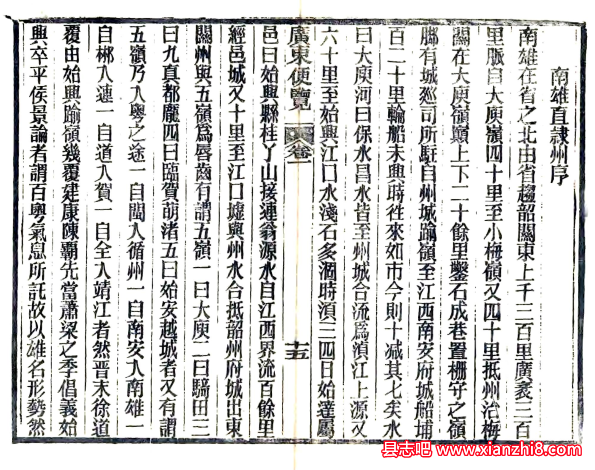 南雄直隸州序
南雄在省之北由省趨韶關東上千三百里廣袤三百
里脈自大庾嶺四十里至小梅嶺又四十里抵州治梅
關在大庾嶺巔上下二十餘里鑿石成巷置柵守之嶺
腳有城巡司所駐自州城踰嶺至江西南安府城船埔
百二十里輪船未興時往來如市今則十減其七矣水
曰大庾河曰保水昌水皆至州城合流為湞江上源又
六十里至始興江口水淺石多涸時須三四日始達屬
廣東便覽
卷一
十五
邑曰始興縣桂丫山接連翁源水自江西界流百餘里
經邑城又十里至江口墟與州水合抵韶州府城出東
關州與五嶺為唇齒有謂五嶺一曰大庾二曰騎田三
曰九真都龐四曰臨賀萌渚五曰始安越城者又有謂
五嶺乃入粵之途一自閩入循州一自南安入南雄一
自郴入連一自道入賀一自全入靖江者然晉末徐道
覆由始興踰嶺幾覆建康陳霸先當蕭梁之季倡義始
興卒平侯景論者謂百粵氣息所託故以雄名形勢然
县志吧🏠www.xianzhi8.com